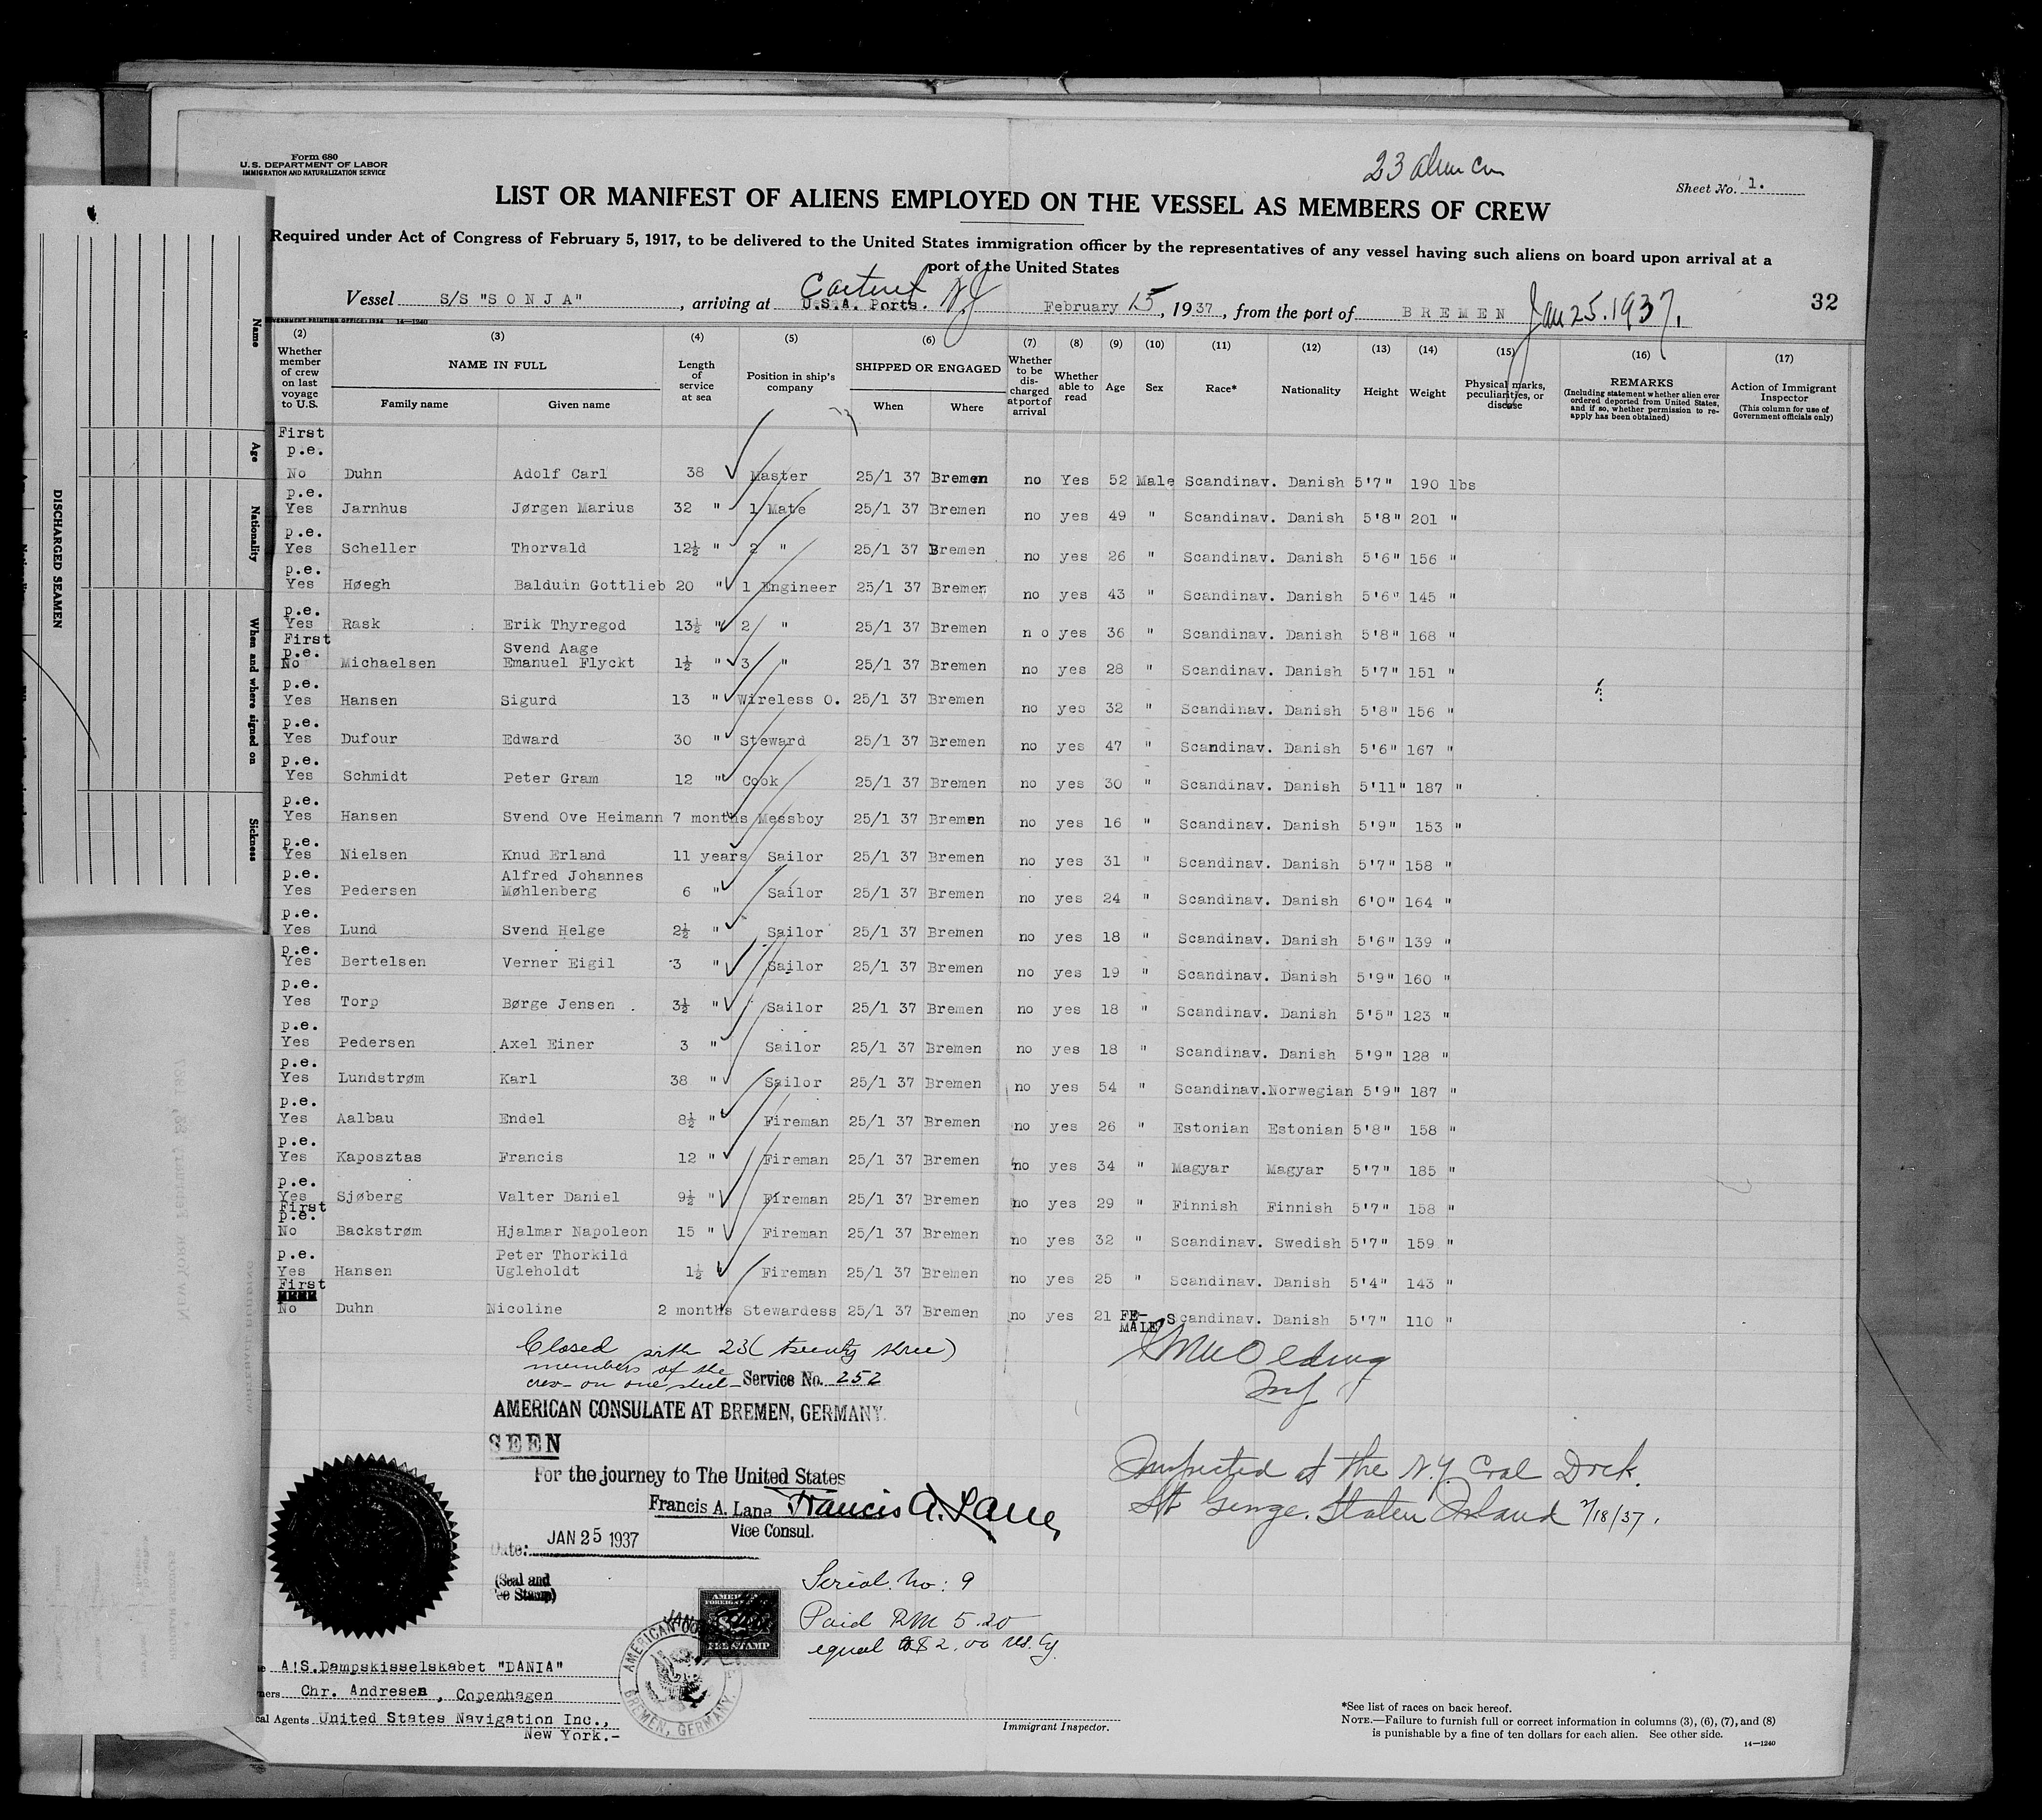 Form 680
U. S. DEPARTMENT OF LABOR
IMMIGRATION AND NATURALIZATION SERVICE
23 alien
Sheet No. 1.
LIST OR MANIFEST OF ALIENS EMPLOYED ON THE VESSEL AS MEMBERS OF CREW
Required under Act of Congress of February 5, 1917, to be delivered to the United States immigration officer by the representatives of any vessel having such aliens on board upon arrival at a
port of the United States
Vessel S/S "SONJA", arriving at Carteret N.J. U.S.A. Ports. February 15, 1937, from the port of BREMEN Jan 25. 1937.
32
GOVERNMENT PRINTING OFFICE: 1934 14—1240
(2) (3) (4) (5) (6) (7) (8) (9) (10) (11) (12) (13) (14) (15) (16) (17)
Whether member of crew on last voyage to U.S.
NAME IN FULL
Family name
Given name
Length of service at sea
Position in ship's company
SHIPPED OR ENGAGED
When
Where
Whether to be discharged at port of arrival
Whether able to read
Age
Sex
Race*
Nationality
Height
Weight
Physical marks, peculiarities, or disease
REMARKS
(Including statement whether alien ever ordered deported from United States, and if so, whether permission to reapply has been obtained)
Action of Immigrant Inspector
(This column for use of Government officials only)
First
p.e.
No Duhn Adolf Carl 38 Master 25/1 37 Bremen no Yes 52 Male Scandinav. Danish 5'7" 190 lbs
p.e.
Yes Jarnhus Jørgen Marius 32 " 1 Mate 25/1 37 Bremen no yes 49 " Scandinav. Danish 5'8" 201 "
p.e.
Yes Scheller Thorvald 12½ " 2 " 25/1 37 Bremen no yes 26 " Scandinav. Danish 5'6" 156 "
p.e.
Yes Høegh Balduin Gottlieb 20 " 1 Engineer 25/1 37 Bremen no yes 43 " Scandinav. Danish 5'6" 145 "
p.e.
Yes Rask Erik Thyregod 13½ " 2 " 25/1 37 Bremen n o yes 36 " Scandinav. Danish 5'8" 168 "
First
p.e. Svend Aage
No Michaelsen Emanuel Flyckt 1½ " 3 " 25/1 37 Bremen no yes 28 " Scandinav. Danish 5'7" 151 "
p.e.
Yes Hansen Sigurd 13 " Wireless O. 25/1 37 Bremen no yes 32 " Scandinav. Danish 5'8" 156 "
p.e.
Yes Dufour Edward 30 " Steward 25/1 37 Bremen no yes 47 " Scandinav. Danish 5'6" 167 "
p.e.
Yes Schmidt Peter Gram 12 " Cook 25/1 37 Bremen no yes 30 " Scandinav. Danish 5'11" 187 "
p.e.
Yes Hansen Svend Ove Heimann 7 months Messboy 25/1 37 Bremen no yes 16 " Scandinav. Danish 5'9" 153 "
p.e.
Yes Nielsen Knud Erland 11 years Sailor 25/1 37 Bremen no yes 31 " Scandinav. Danish 5'7" 158 "
p.e. Alfred Johannes
Yes Pedersen Møhlenberg 6 " Sailor 25/1 37 Bremen no yes 24 " Scandinav. Danish 6'0" 164 "
p.e.
Yes Lund Svend Helge 2½ " Sailor 25/1 37 Bremen no yes 18 " Scandinav. Danish 5'6" 139 "
p.e.
Yes Bertelsen Verner Eigil 3 " Sailor 25/1 37 Bremen no yes 19 " Scandinav. Danish 5'9" 160 "
p.e.
Yes Torp Børge Jensen 3½ " Sailor 25/1 37 Bremen no yes 18 " Scandinav. Danish 5'5" 123 "
p.e.
Yes Pedersen Axel Einer 3 " Sailor 25/1 37 Bremen no yes 18 " Scandinav. Danish 5'9" 128 "
p.e.
Yes Lundstrøm Karl 38 " Sailor 25/1 37 Bremen no yes 54 " Scandinav. Norwegian 5'9" 187 "
p.e.
Yes Aalbau Endel 8½ " Fireman 25/1 37 Bremen no yes 26 " Estonian Estonian 5'8" 158 "
p.e.
Yes Kaposztas Francis 12 " Fireman 25/1 37 Bremen no yes 34 " Magyar Magyar 5'7" 185 "
p.e.
Yes Sjøberg Valter Daniel 9½ " Fireman 25/1 37 Bremen no yes 29 " Finnish Finnish 5'7" 158 "
First
p.e.
No Backstrøm Hjalmar Napoleon 15 " Fireman 25/1 37 Bremen no yes 32 " Scandinav. Swedish 5'7" 159 "
p.e. Peter Thorkild
Yes Hansen Ugleholdt 1½ " Fireman 25/1 37 Bremen no yes 25 " Scandinav. Danish 5'4" 143 "
First
No Duhn Nicoline 2 months Stewardess 25/1 37 Bremen no yes 21 FE-MALE Scandinav. Danish 5'7" 110 "
Closed with 23 (twenty three)
members of the
crew on one sheet Service No. 252
AMERICAN CONSULATE AT BREMEN, GERMANY.
SEEN
For the journey to The United States
Francis A. Lane Francis A. Lane
Vice Consul.
Date: JAN 25 1937
(Seal and
Fee Stamp)
Inspected at the N.Y. Coal Dock.
St George. Staten Island 2/18/37.
Serial No: 9
Paid RM 5.20
equal $2.00 US. Cy.
FEE STAMP
AMERICAN
BREMEN, GERMANY.
A/S. Dampskisselskabet "DANIA"
Owners Chr. Andresen, Copenhagen
Local Agents United States Navigation Inc.,
New York.-
Immigrant Inspector.
*See list of races on back hereof.
NOTE.—Failure to furnish full or correct information in columns (3), (6), (7), and (8)
is punishable by a fine of ten dollars for each alien. See other side.
14—1240
Name
Age
Nationality
When and where signed on
Sickness
DISCHARGED SEAMEN